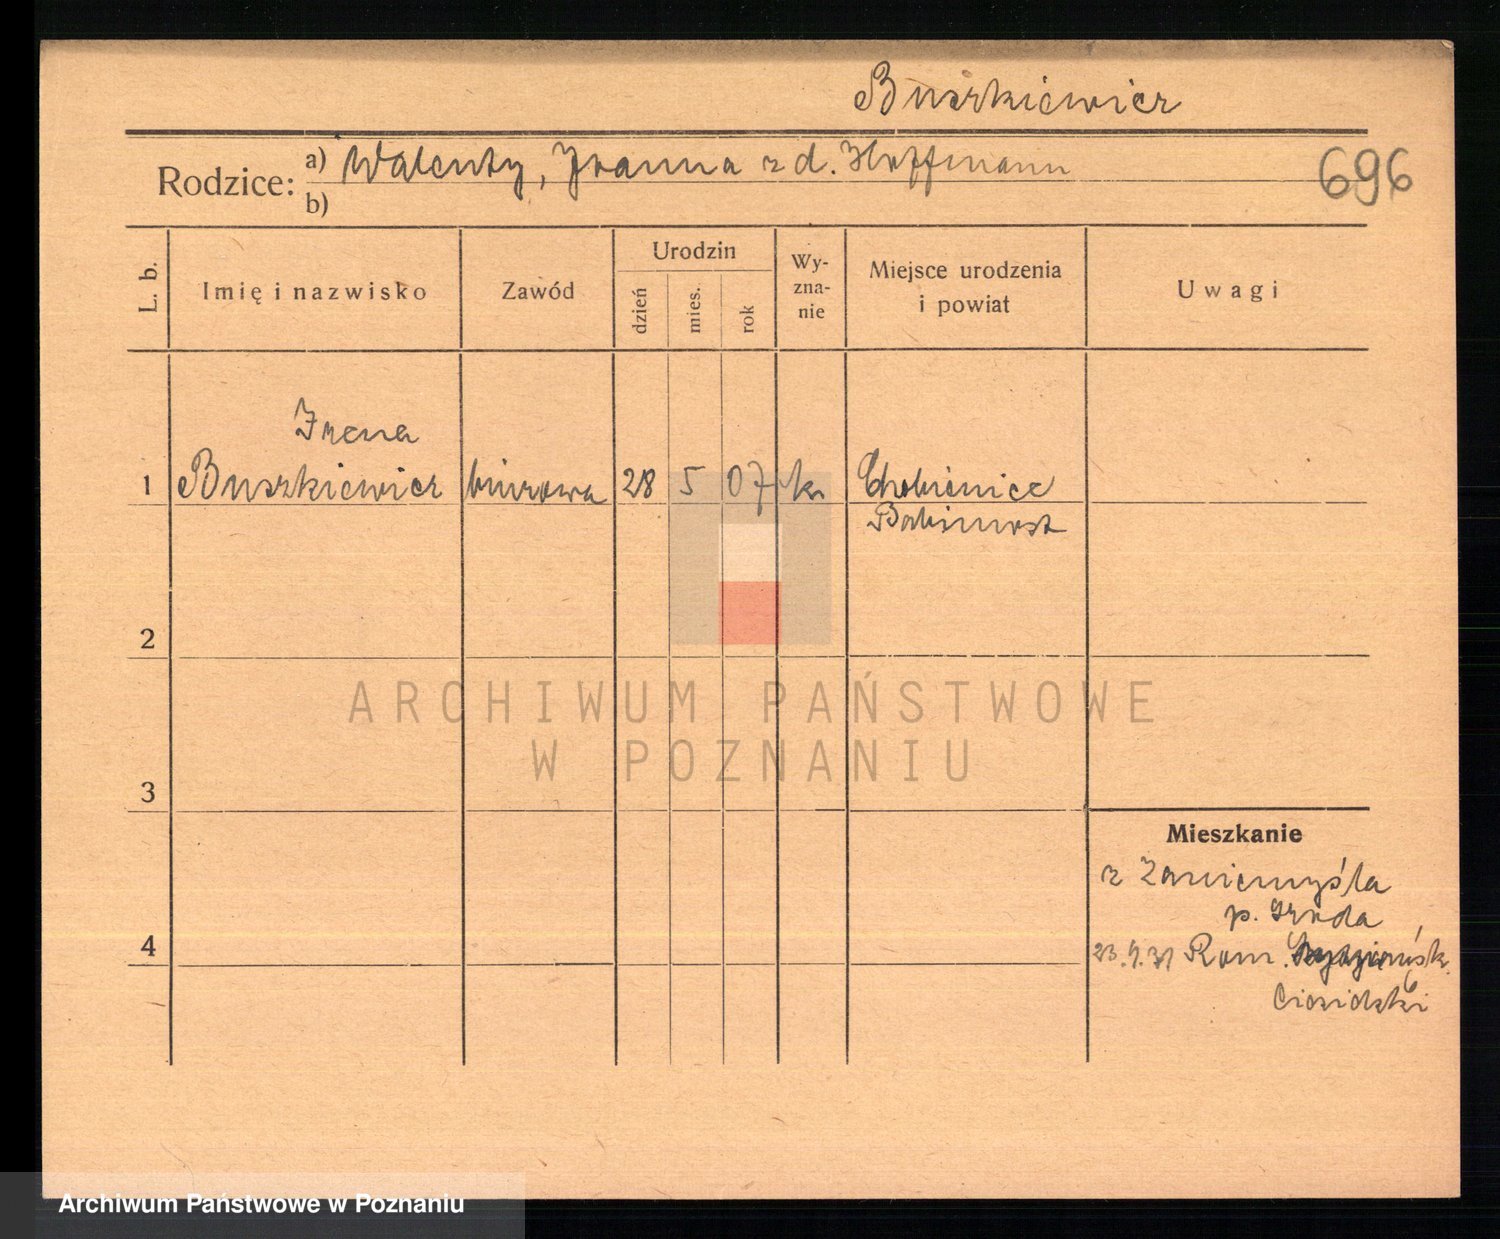 Buszkiewicz
Rodzice: a) Walenty, Joanna z d. Hoffmann
b)
696
L. b.
Imię i nazwisko
Zawód
Urodzin
dzień
mies.
rok
Wy-
zna-
nie
Miejsce urodzenia
i powiat
Uwagi
Irena
1 Buszkiewicz biurowa 28 5 07 kr Chobienice
Babimost
2
3
4
ARCHIWUM PAŃSTWOWE
W POZNANIU
Mieszkanie
z Zaniemyśla
p. Środa
23.9.31 Rom.
Archiwum Państwowe w Poznaniu